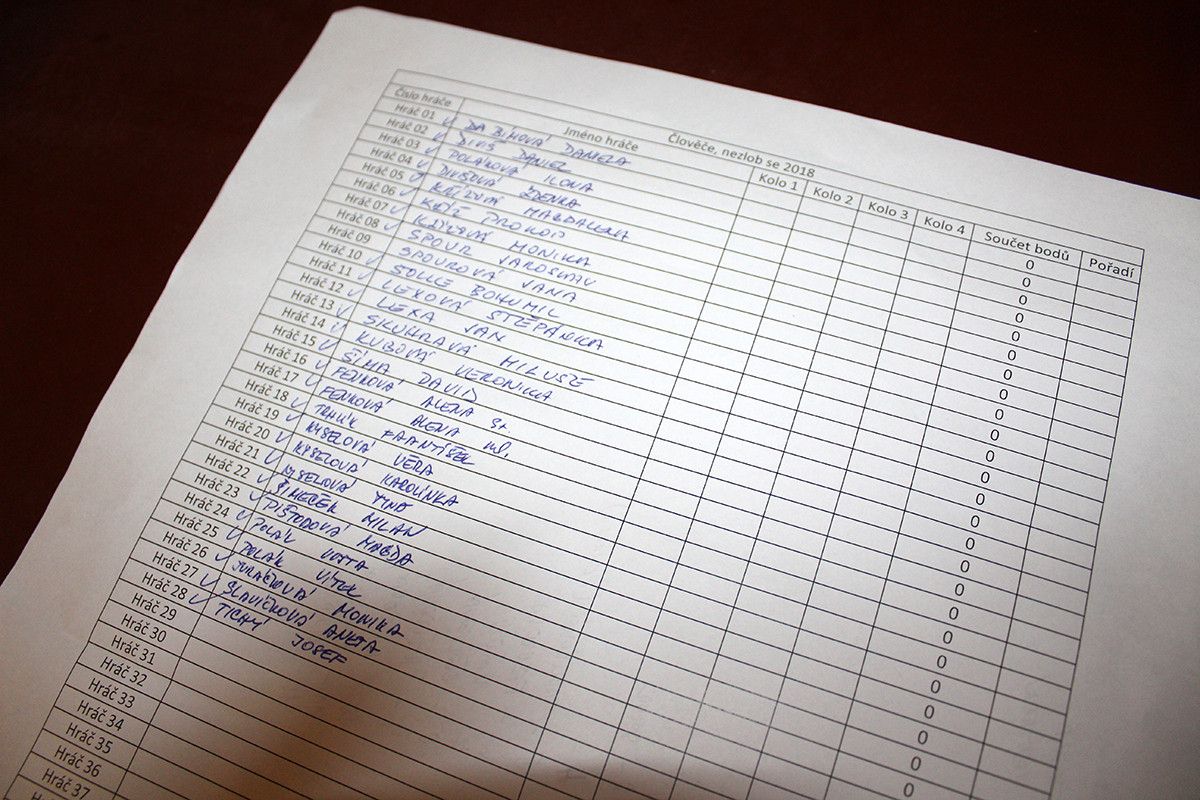 Člověče, nezlob se 2018
Číslo hráče Jméno hráče Kolo 1 Kolo 2 Kolo 3 Kolo 4 Součet bodů Pořadí
Hráč 01 DANIELA 0
Hráč 02 DIVIŠ DANIEL 0
Hráč 03 POLÁKOVÁ ILONA 0
Hráč 04 DIVIŠOVÁ ZDENKA 0
Hráč 05 KŘÍŽOVÁ MAGDALENA 0
Hráč 06 KŘÍŽ PROKOP 0
Hráč 07 KŘÍŽOVÁ MONIKA 0
Hráč 08 SPOUR JAROSLAV 0
Hráč 09 SPOUROVÁ JANA 0
Hráč 10 BOHUMIL 0
Hráč 11 LEXOVÁ ŠTĚPÁNKA 0
Hráč 12 LEXA JAN 0
Hráč 13 SKUHRAVÁ MILUŠE 0
Hráč 14 KUBOVÁ VERONIKA 0
Hráč 15 ŠÍMA DAVID 0
Hráč 16 ALENA st. 0
Hráč 17 ALENA ml. 0
Hráč 18 FRANTIŠEK 0
Hráč 19 KYSELOVÁ VĚRA 0
Hráč 20 KYSELOVÁ KAROLÍNKA 0
Hráč 21 KYSELOVÁ 0
Hráč 22 ŠIMEČEK MILAN 0
Hráč 23 PIŠTODOVÁ MAGDA 0
Hráč 24 POLÁK VOJTA 0
Hráč 25 POLÁK VÍTEK 0
Hráč 26 JURÁČKOVÁ MONIKA
Hráč 27 SLAVÍČKOVÁ ANETA
Hráč 28 TICHÝ JOSEF
Hráč 29
Hráč 30
Hráč 31
Hráč 32
Hráč 33
Hráč 34
Hráč 35
Hráč 36
Hráč 37